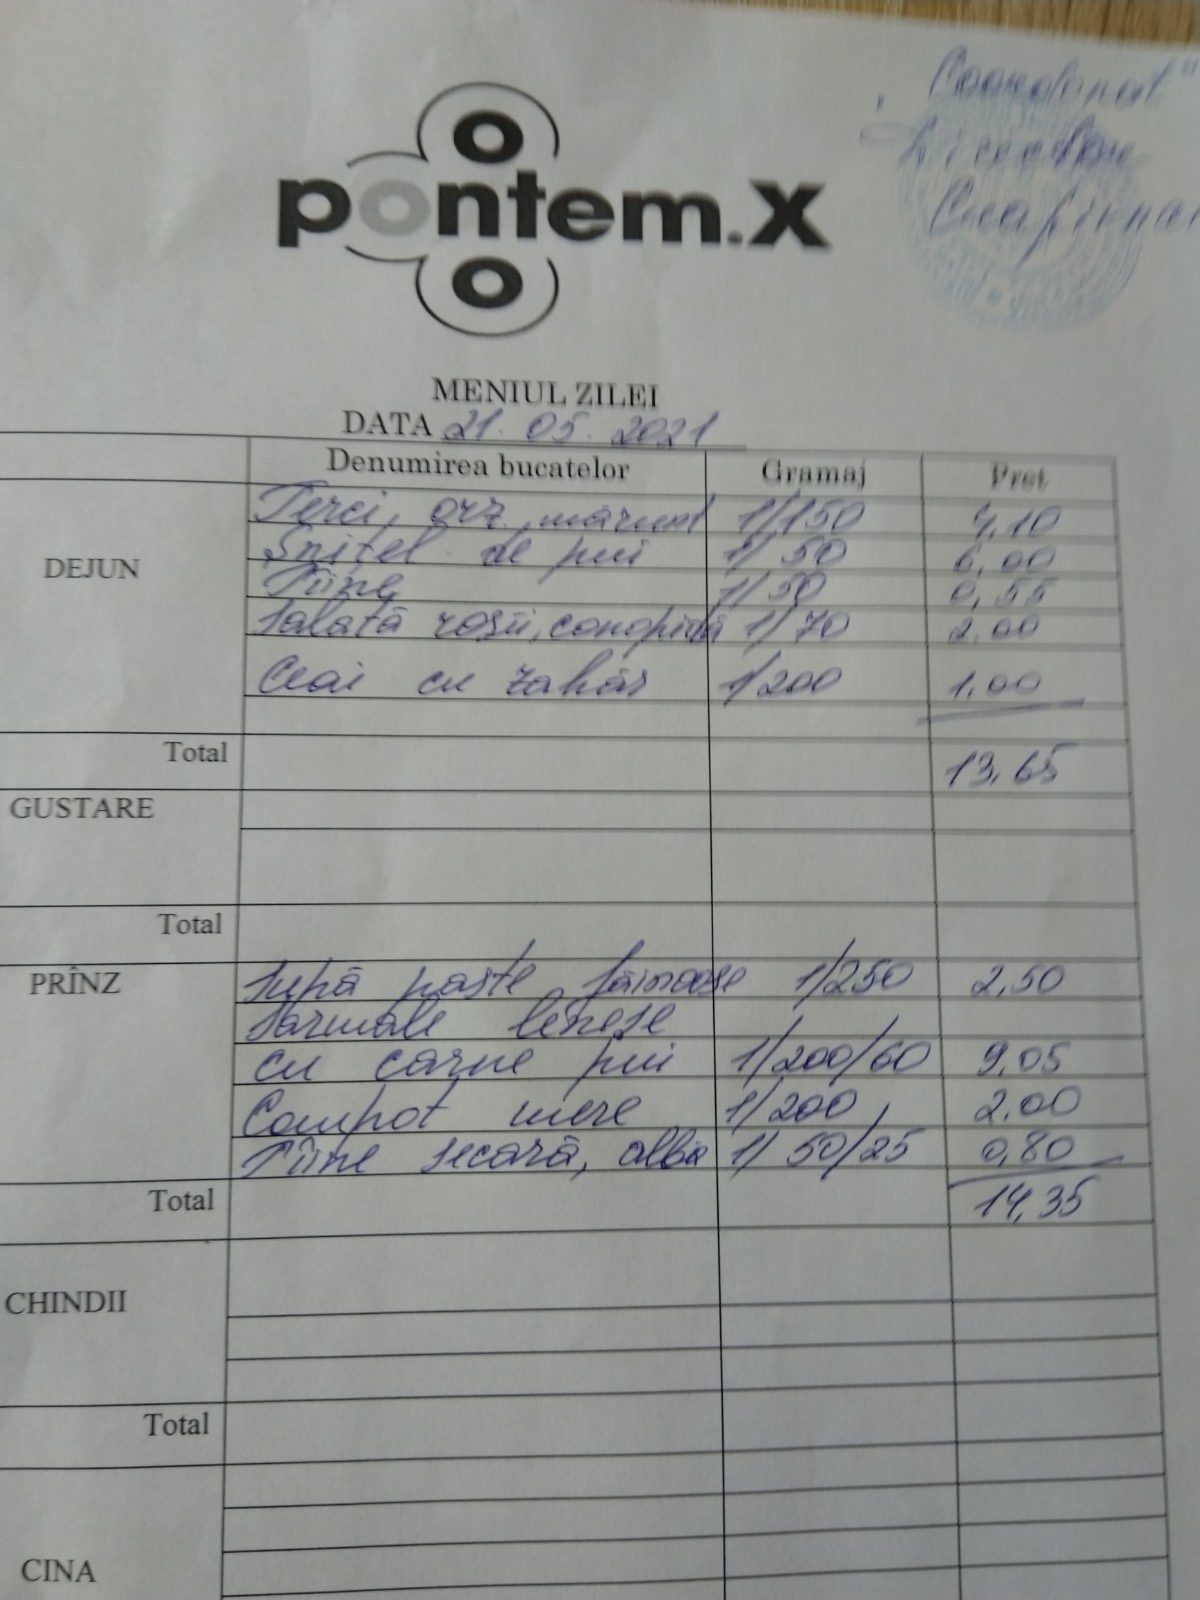 „Coordonat"
pontem.x
MENIUL ZILEI
DATA 21.05.2021
Denumirea bucatelor Gramaj Pret
DEJUN
Terci, orz mărunt 1/150 4,10
Șnițel de pui 1/50 6,00
Pîine 1/50 0,55
Salată roșii, conopidă 1/70 2.00
Ceai cu zahăr 1/200 1,00
Total 13,65
GUSTARE
Total
PRÎNZ
Supă paste făinoase 1/250 2,50
Sarmale leneșe
cu carne pui 1/200/60 9,05
Compot mere 1/200 2,00
Pîine secară, albă 1/50/25 0,80
Total 14,35
CHINDII
Total
CINA